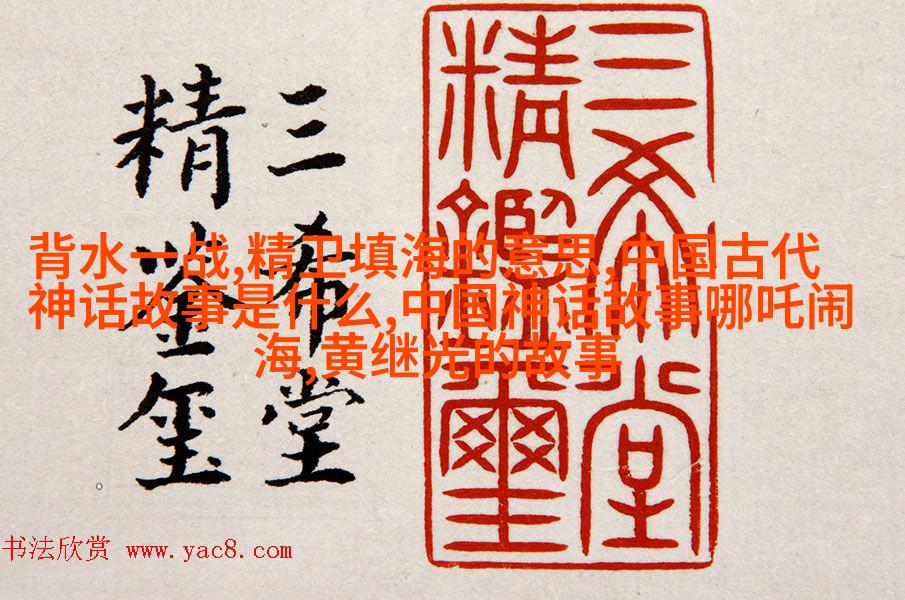 三希堂
精鑑璽
三希堂
精鉴玺
背水一战,精卫填海的意思,中国古代
神话故事是什么,中国神话故事哪吒闹
海,黄继光的故事
书法欣赏 www.yac8.com